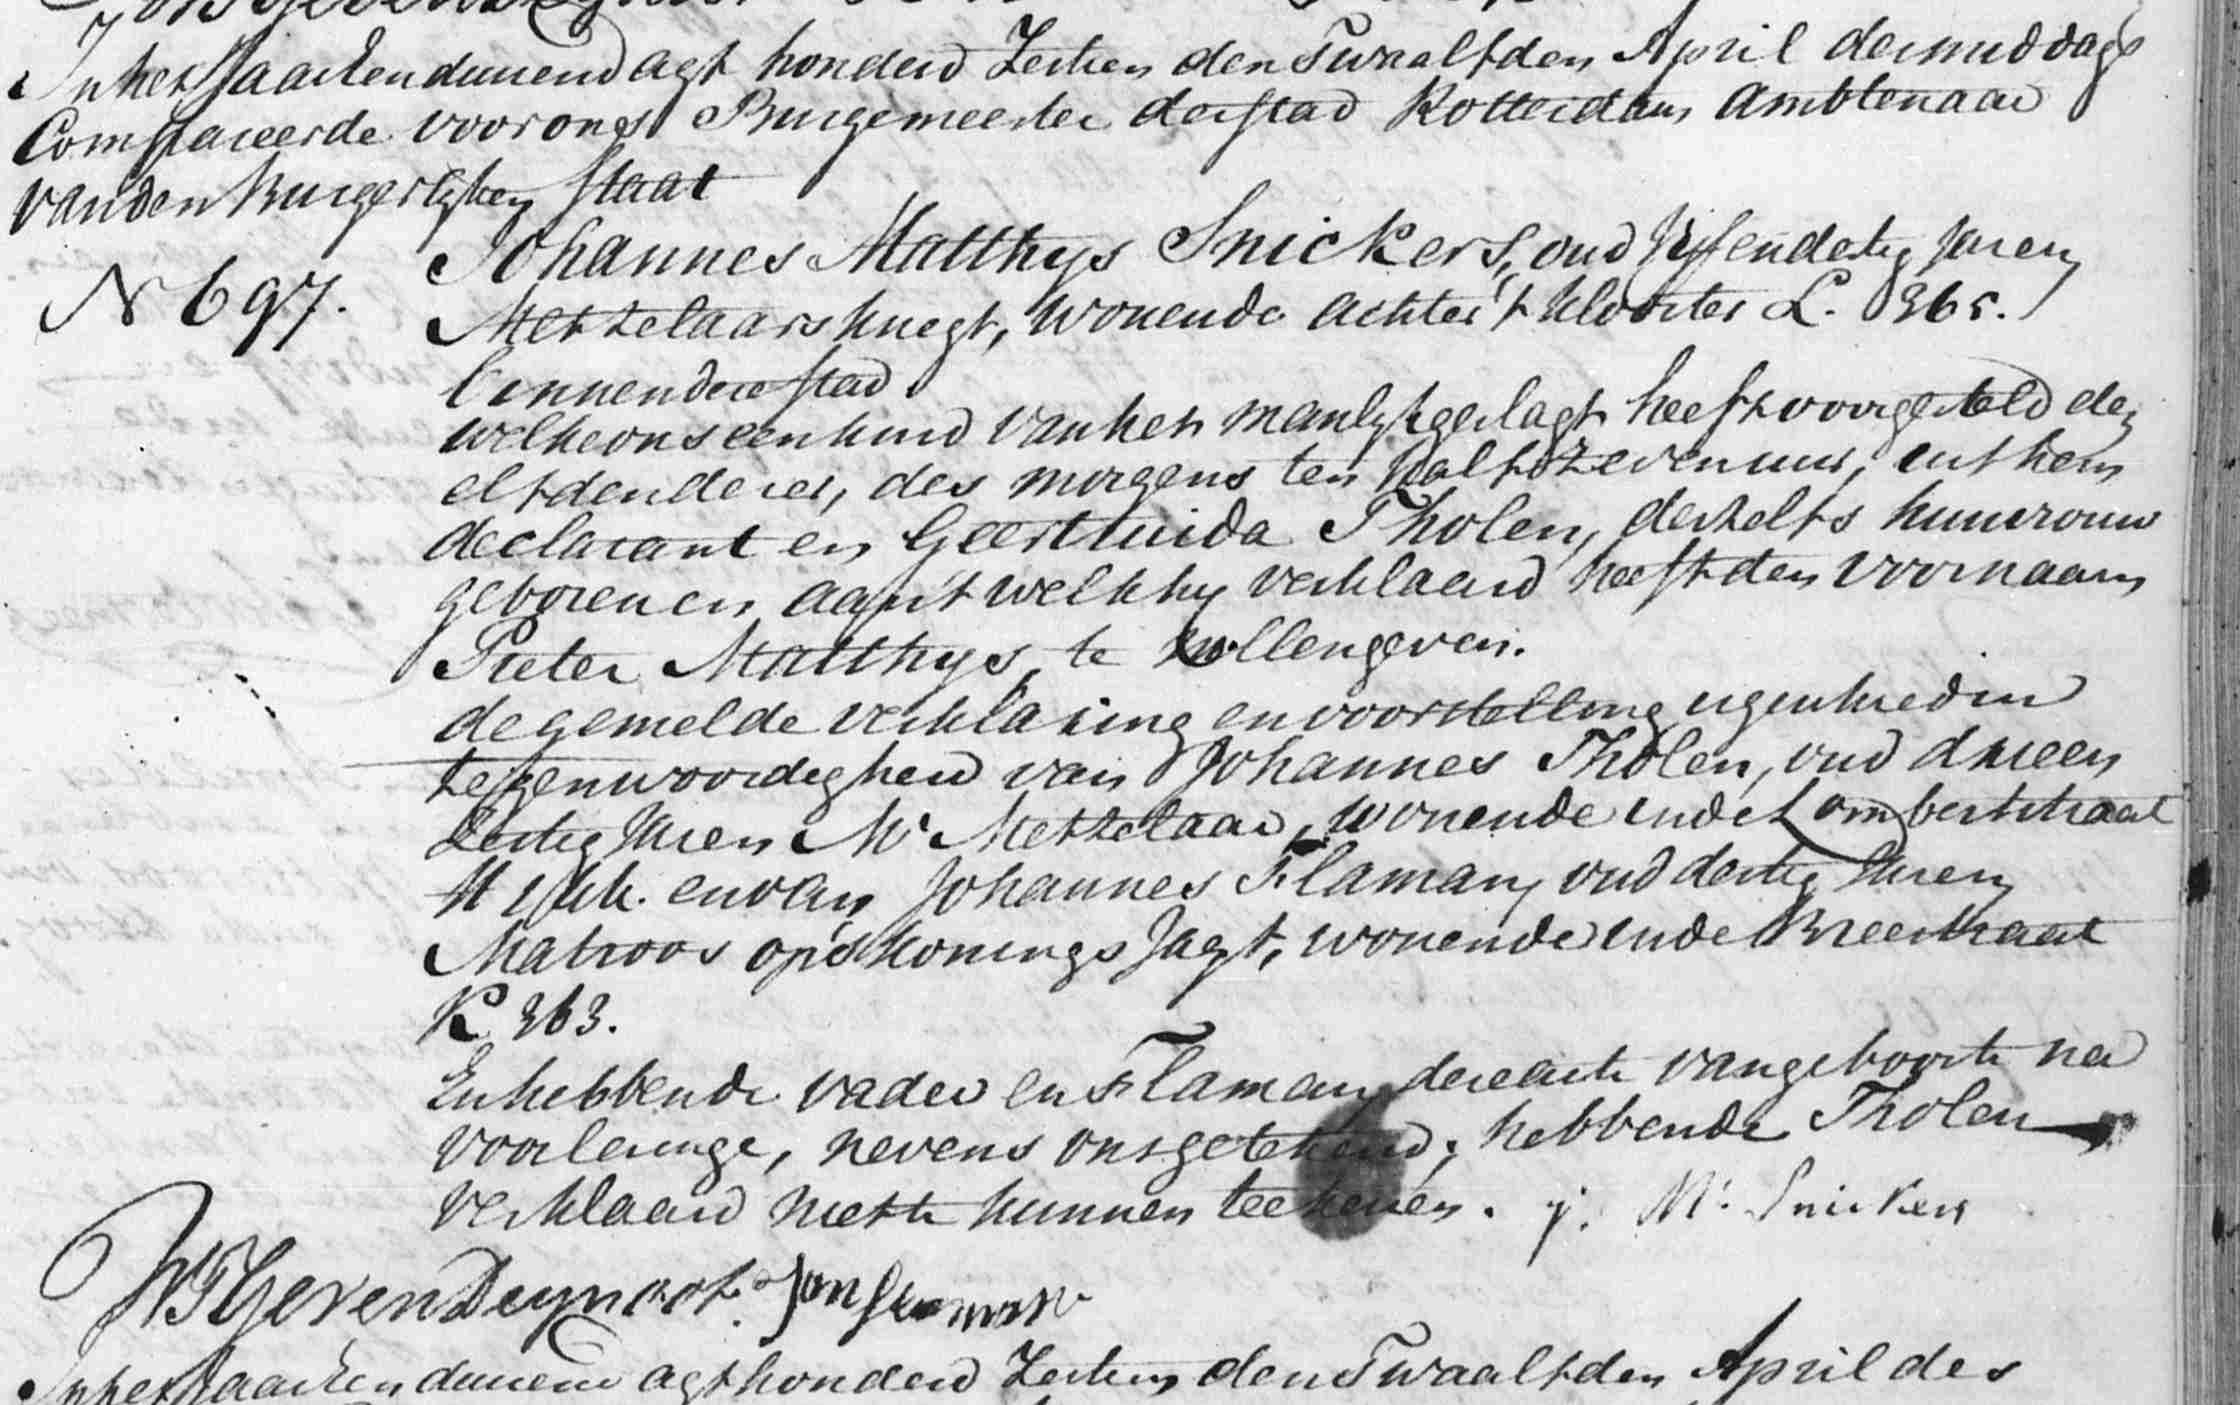 In het Jaar een duizend agt honderd Zestien den Twaalfden April des middags
Compareerde voor ons Burgemeester der stad Rotterdam Ambtenaar
van den Burgerlyken Staat
N 697. Johannes Matthys Snickers, oud Vyfendertig Jaren
Metzelaarsknegt, wonende achter 't klooster L. 365.
binnen deze stad
welke ons een kind van het manlyk geslagt heeft voorgesteld den
elfden dezer, des morgens ten half zeven uur, uit hem
declarant en Geertruida Tholen, deszelfs huisvrouw
geboren en aan 't welk hy verklaard heeft den voornaam
Pieter Matthys, te willen geven.
de gemelde verklaring en voorstelling is geschied in
tegenwoordigheid van Johannes Tholen, oud drieen
Zestig Jaren Mr Metzelaar, wonende in de Lombertstraat
en van Johannes Flaman, oud dertig Jaren
Matroos op 's Konings Jagt, wonende in de Breestraat
K 363.
En hebbende vader en Flaman deze acte van geboorte na
voorlezinge, nevens ons getekend; hebbende Tholen
verklaard niet te kunnen teekenen. j. M. Snickers
WTGevers Deynoot. Jan flamman
In het Jaar een duizend agt honderd Zestien den Twaalfden April des